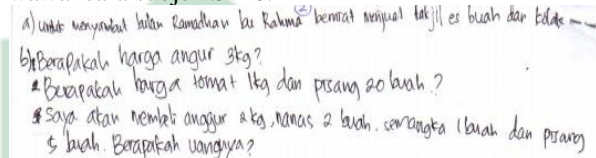 a) untuk menyambut bulan Ramadhan bu Rahma berniat menjual takjil es buah dan kolak
b) Berapakah harga angur 3kg?
Berapakah harga tomat 1kg dan pisang 20 buah?
Saya akan membeli anggur 2kg, nanas 2 buah, semangka 1 buah dan pisang
5 buah. Berapakah uangnya?